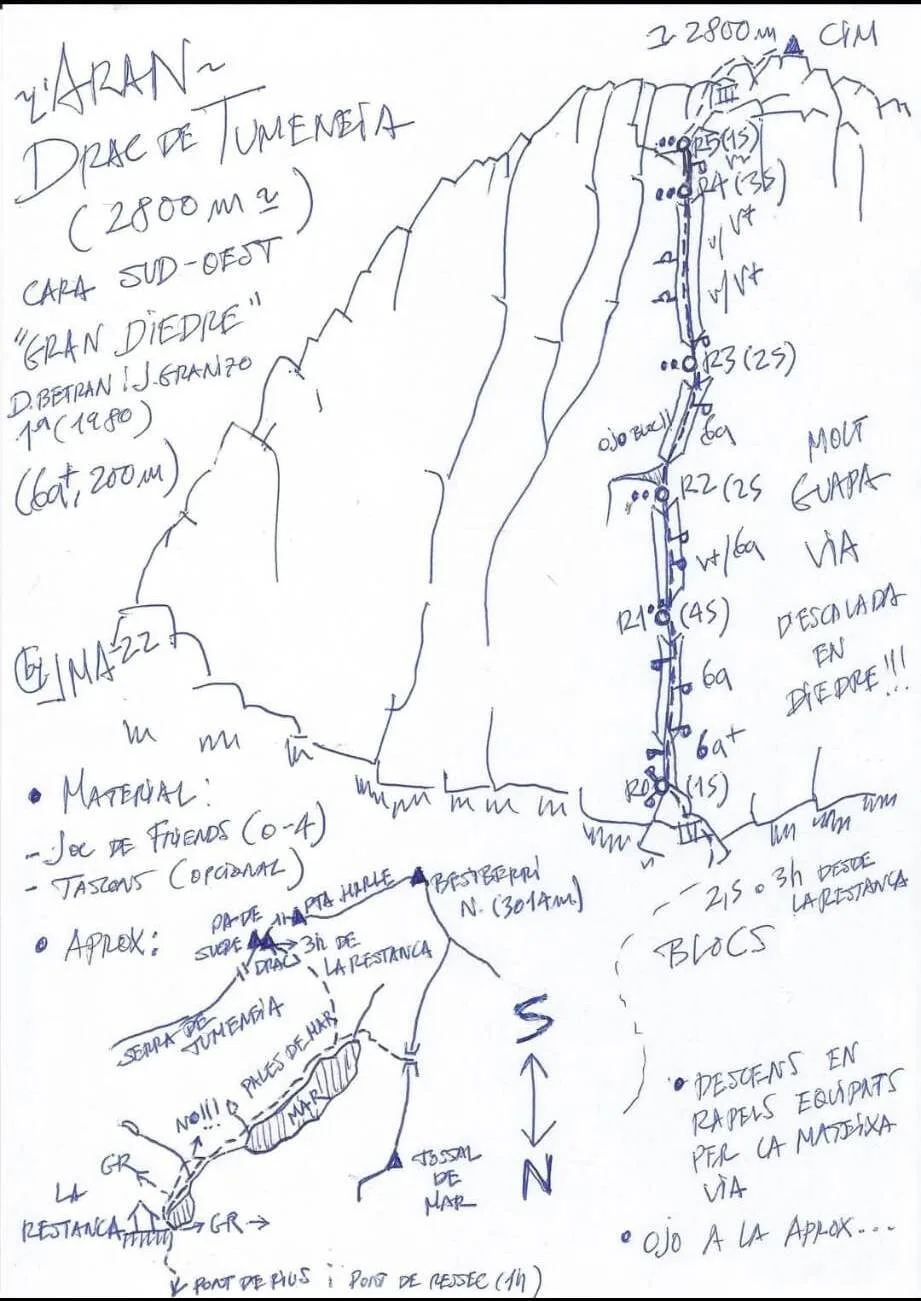 ~ARAN~
DRAC DE TUMENEIA
(2800 m ~)
CARA SUD-OEST
"GRAN DIEDRE"
D. BETRAN i J. GRANIZO
1ª (1980)
(6a+, 200 m)
by JMA-22
~ 2800 m CIM
III
R5 (1S)
V
R4 (3S)
V/V+
V/V+
R3 (2S)
OJO BLOC!!
6a
R2 (2S
V+/6a
R1 (4S)
6a
6a+
R0 (1S)
III
MOLT
GUAPA
VIA
D'ESCALADA
EN
DIEDRE!!!
• MATERIAL:
- JOC DE FRIENDS (0-4)
- TASCONS (OPCIONAL)
• APROX:
2,5 o 3h DESDE
LA RESTANCA
BLOCS
BESIBERRI
N. (3014m.)
PTA. HARLE
1h
PA DE
SUCRE
DRAC
3h DE
LA RESTANCA
SERRA DE
TUMENEIA
PALES DE MAR
NO!!!
MAR
GR
LA
RESTANCA
GR
TOSSAL
DE
MAR
S
N
PONT DE RIUS i PONT DE RESSEC (1h)
• DESCENS EN
RAPELS EQUIPATS
PER LA MATEIXA
VIA
• OJO A LA APROX...